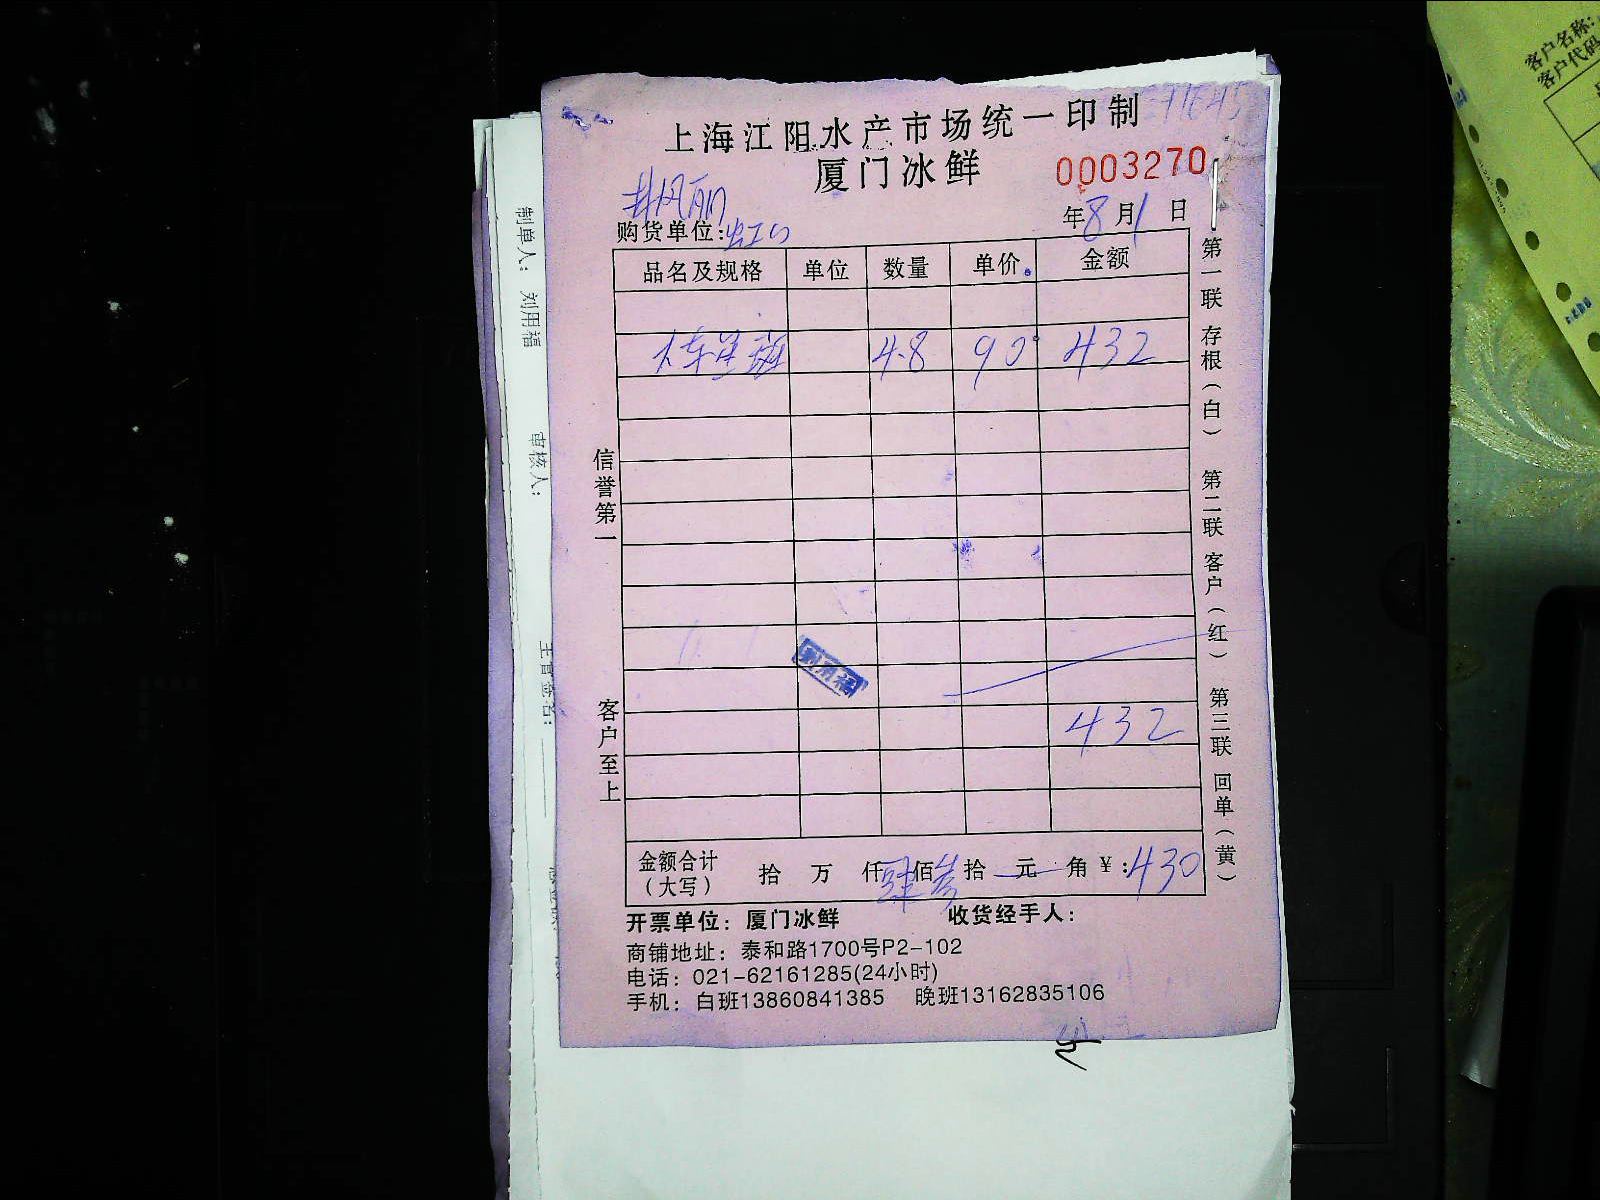 上海江阳水产市场统一印制
厦门冰鲜
0003270
年8月1日
购货单位:虹口
品名及规格 单位 数量 单价 金额
4.8 90 432
432
金额合计(大写) 拾 万 仟肆佰叁拾 元 角 ¥:430
开票单位：厦门冰鲜 收货经手人：
商铺地址：泰和路1700号P2-102
电话：021-62161285(24小时)
手机：白班13860841385 晚班13162835106
信誉第一
客户至上
第一联 存根（白） 第二联 客户（红） 第三联 回单（黄）
刘用福
制单人： 刘用福 审核人：
客户名称:
客户代码